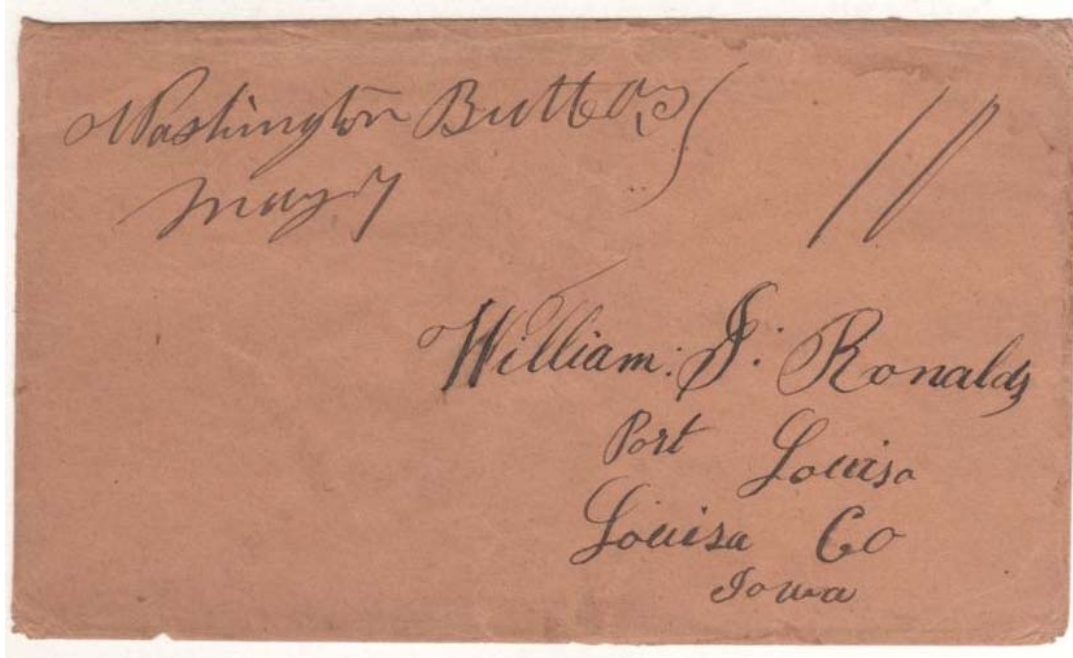 Washington Butte
May 7
William. S. Ronalds
Port Louisa
Louisa Co
Iowa